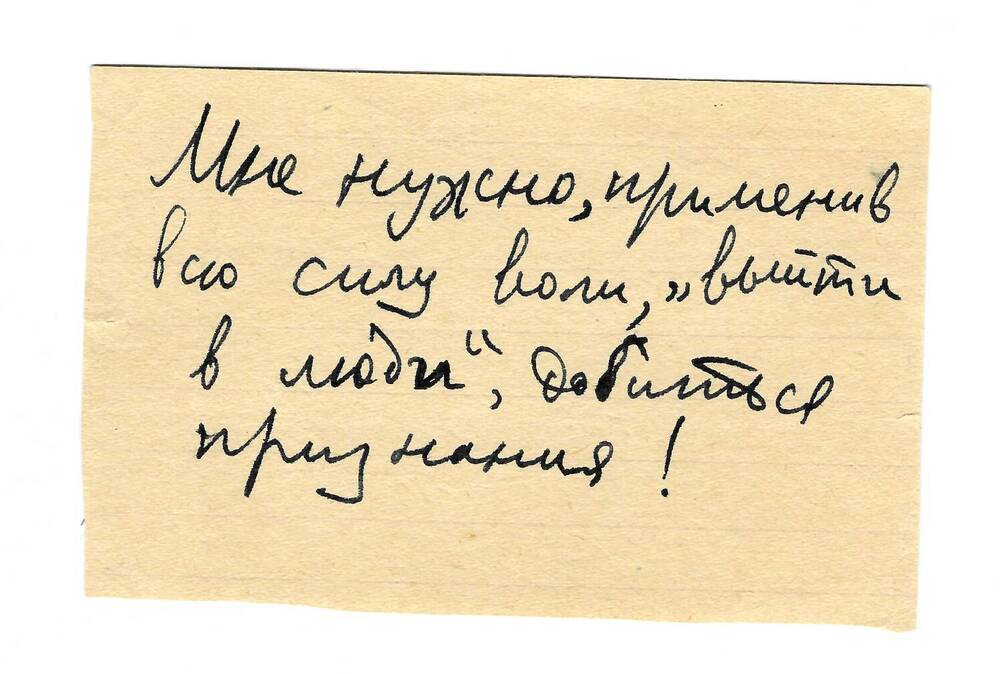 Мне нужно, применив
всю силу воли, „выйти
в люди“, добиться
признания!